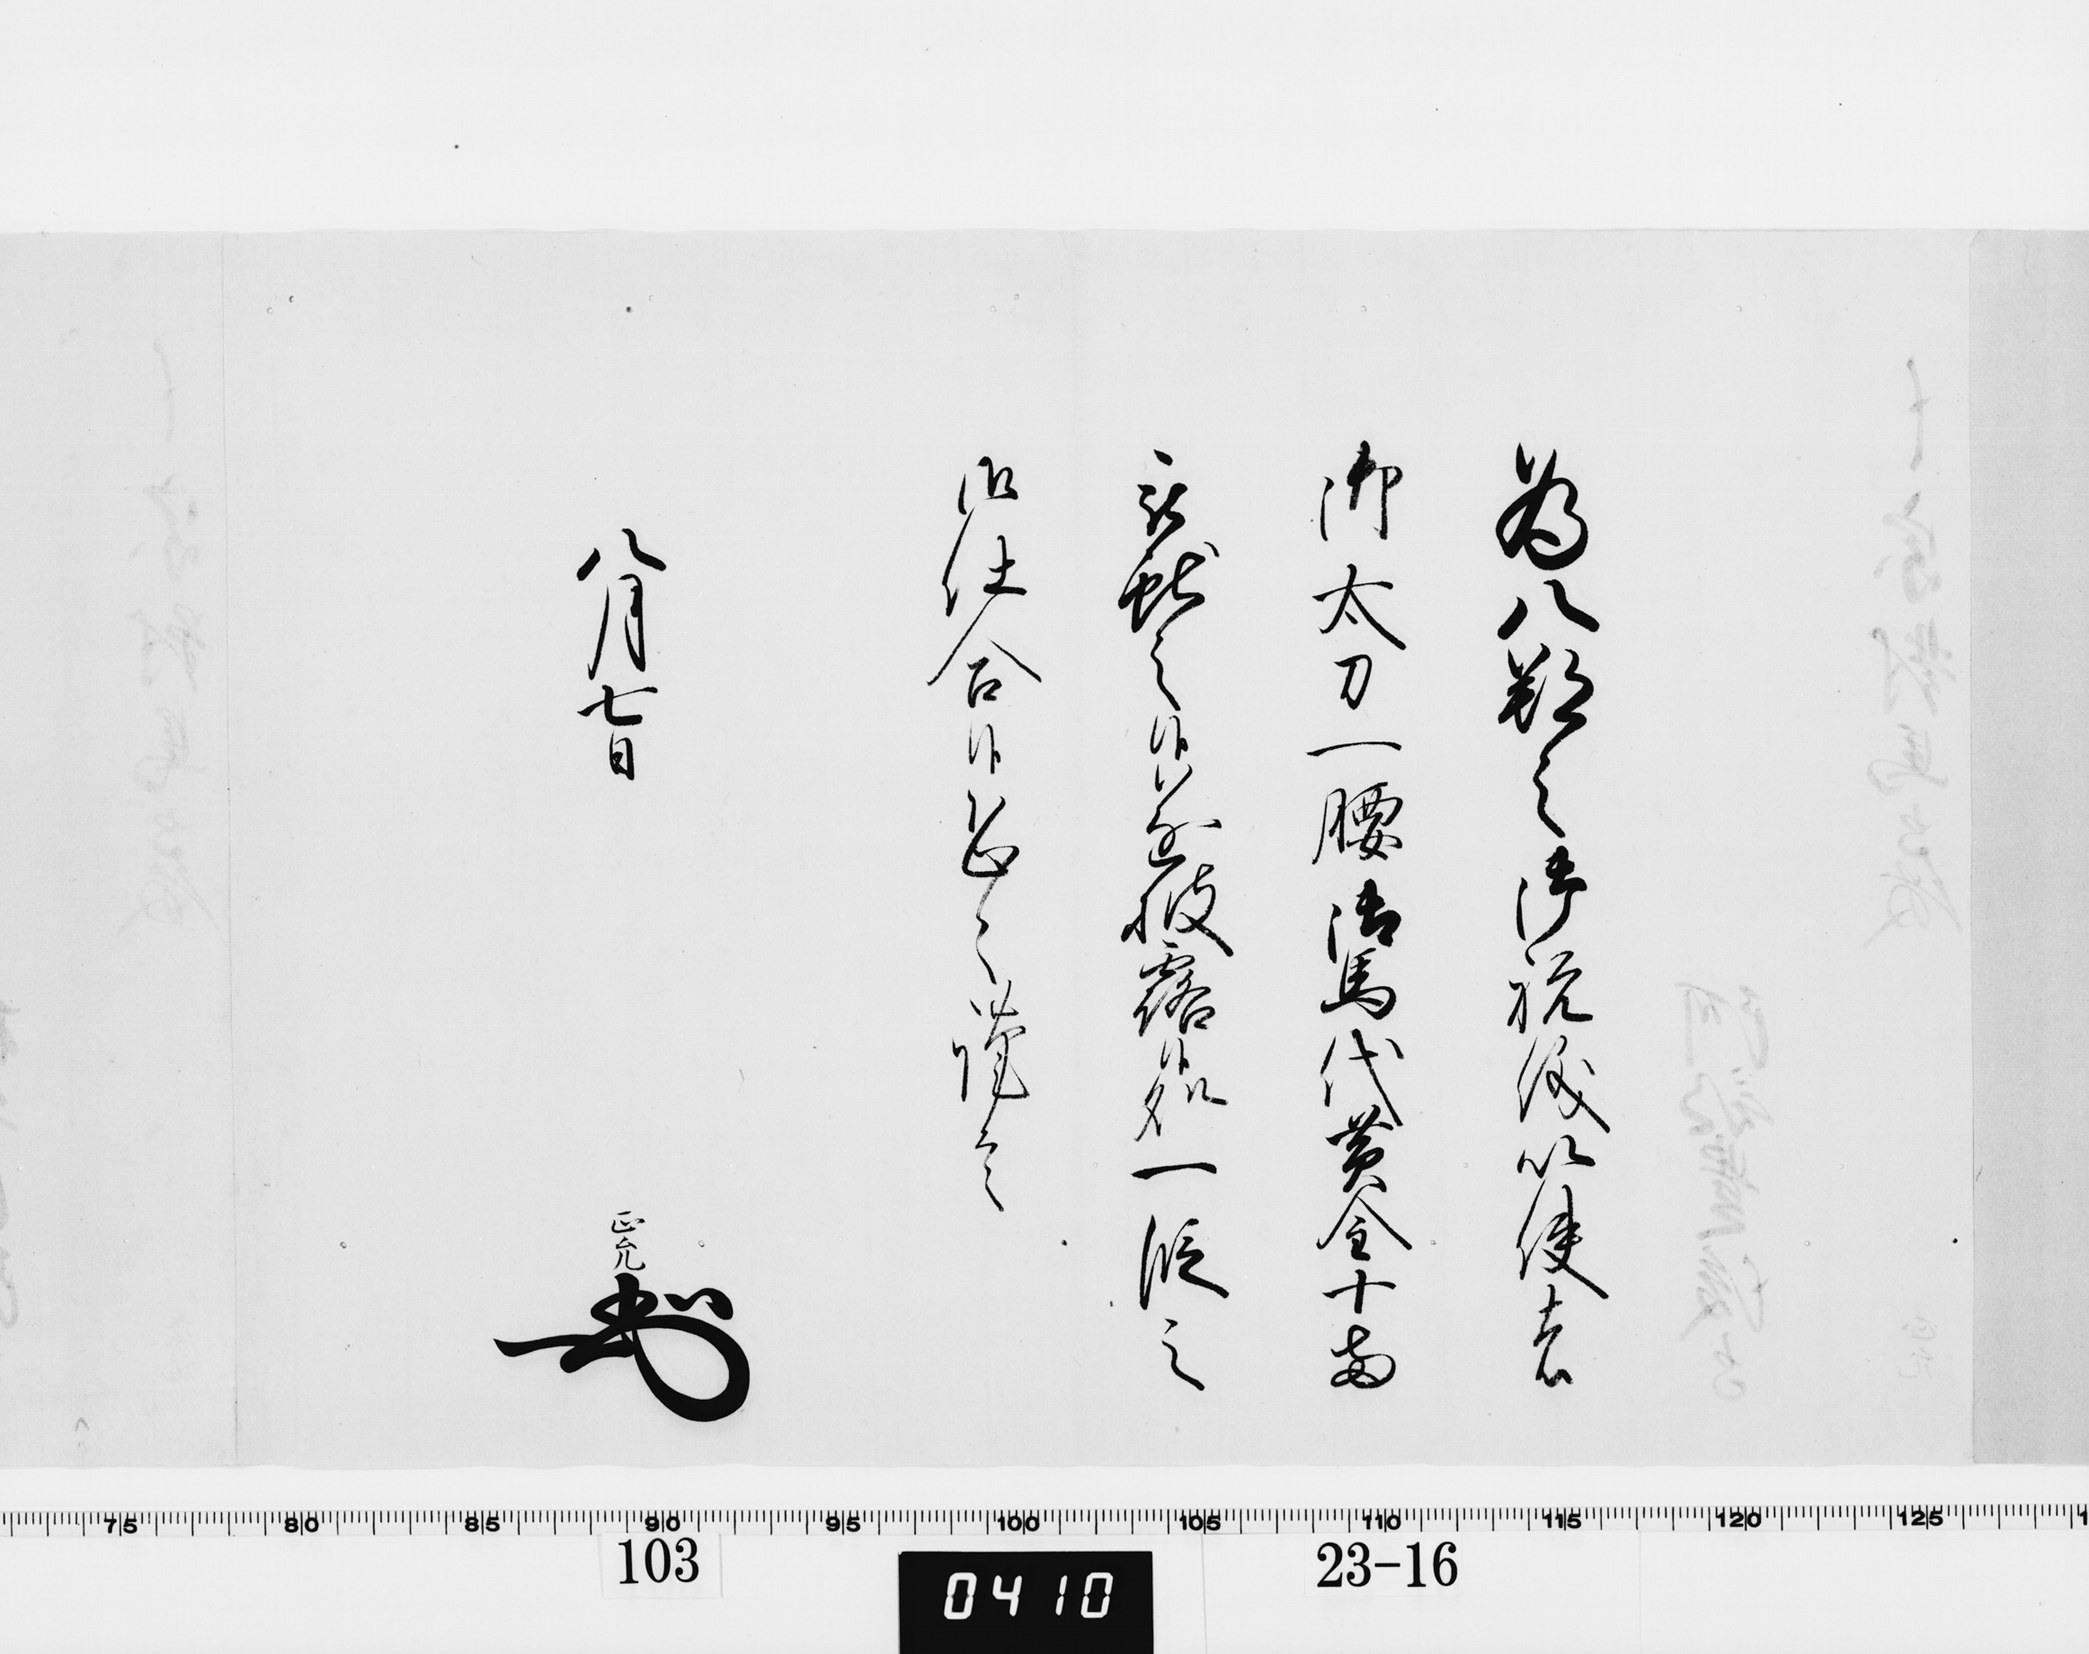 為八朔之御祝儀以使者
御太刀一腰御馬代黄金十両
被献之候遂披露候処一段之
御仕合候恐々謹言
八月七日
正允
75 80 85 90 95 100 105 110 115 120 125
103
0410
23-16